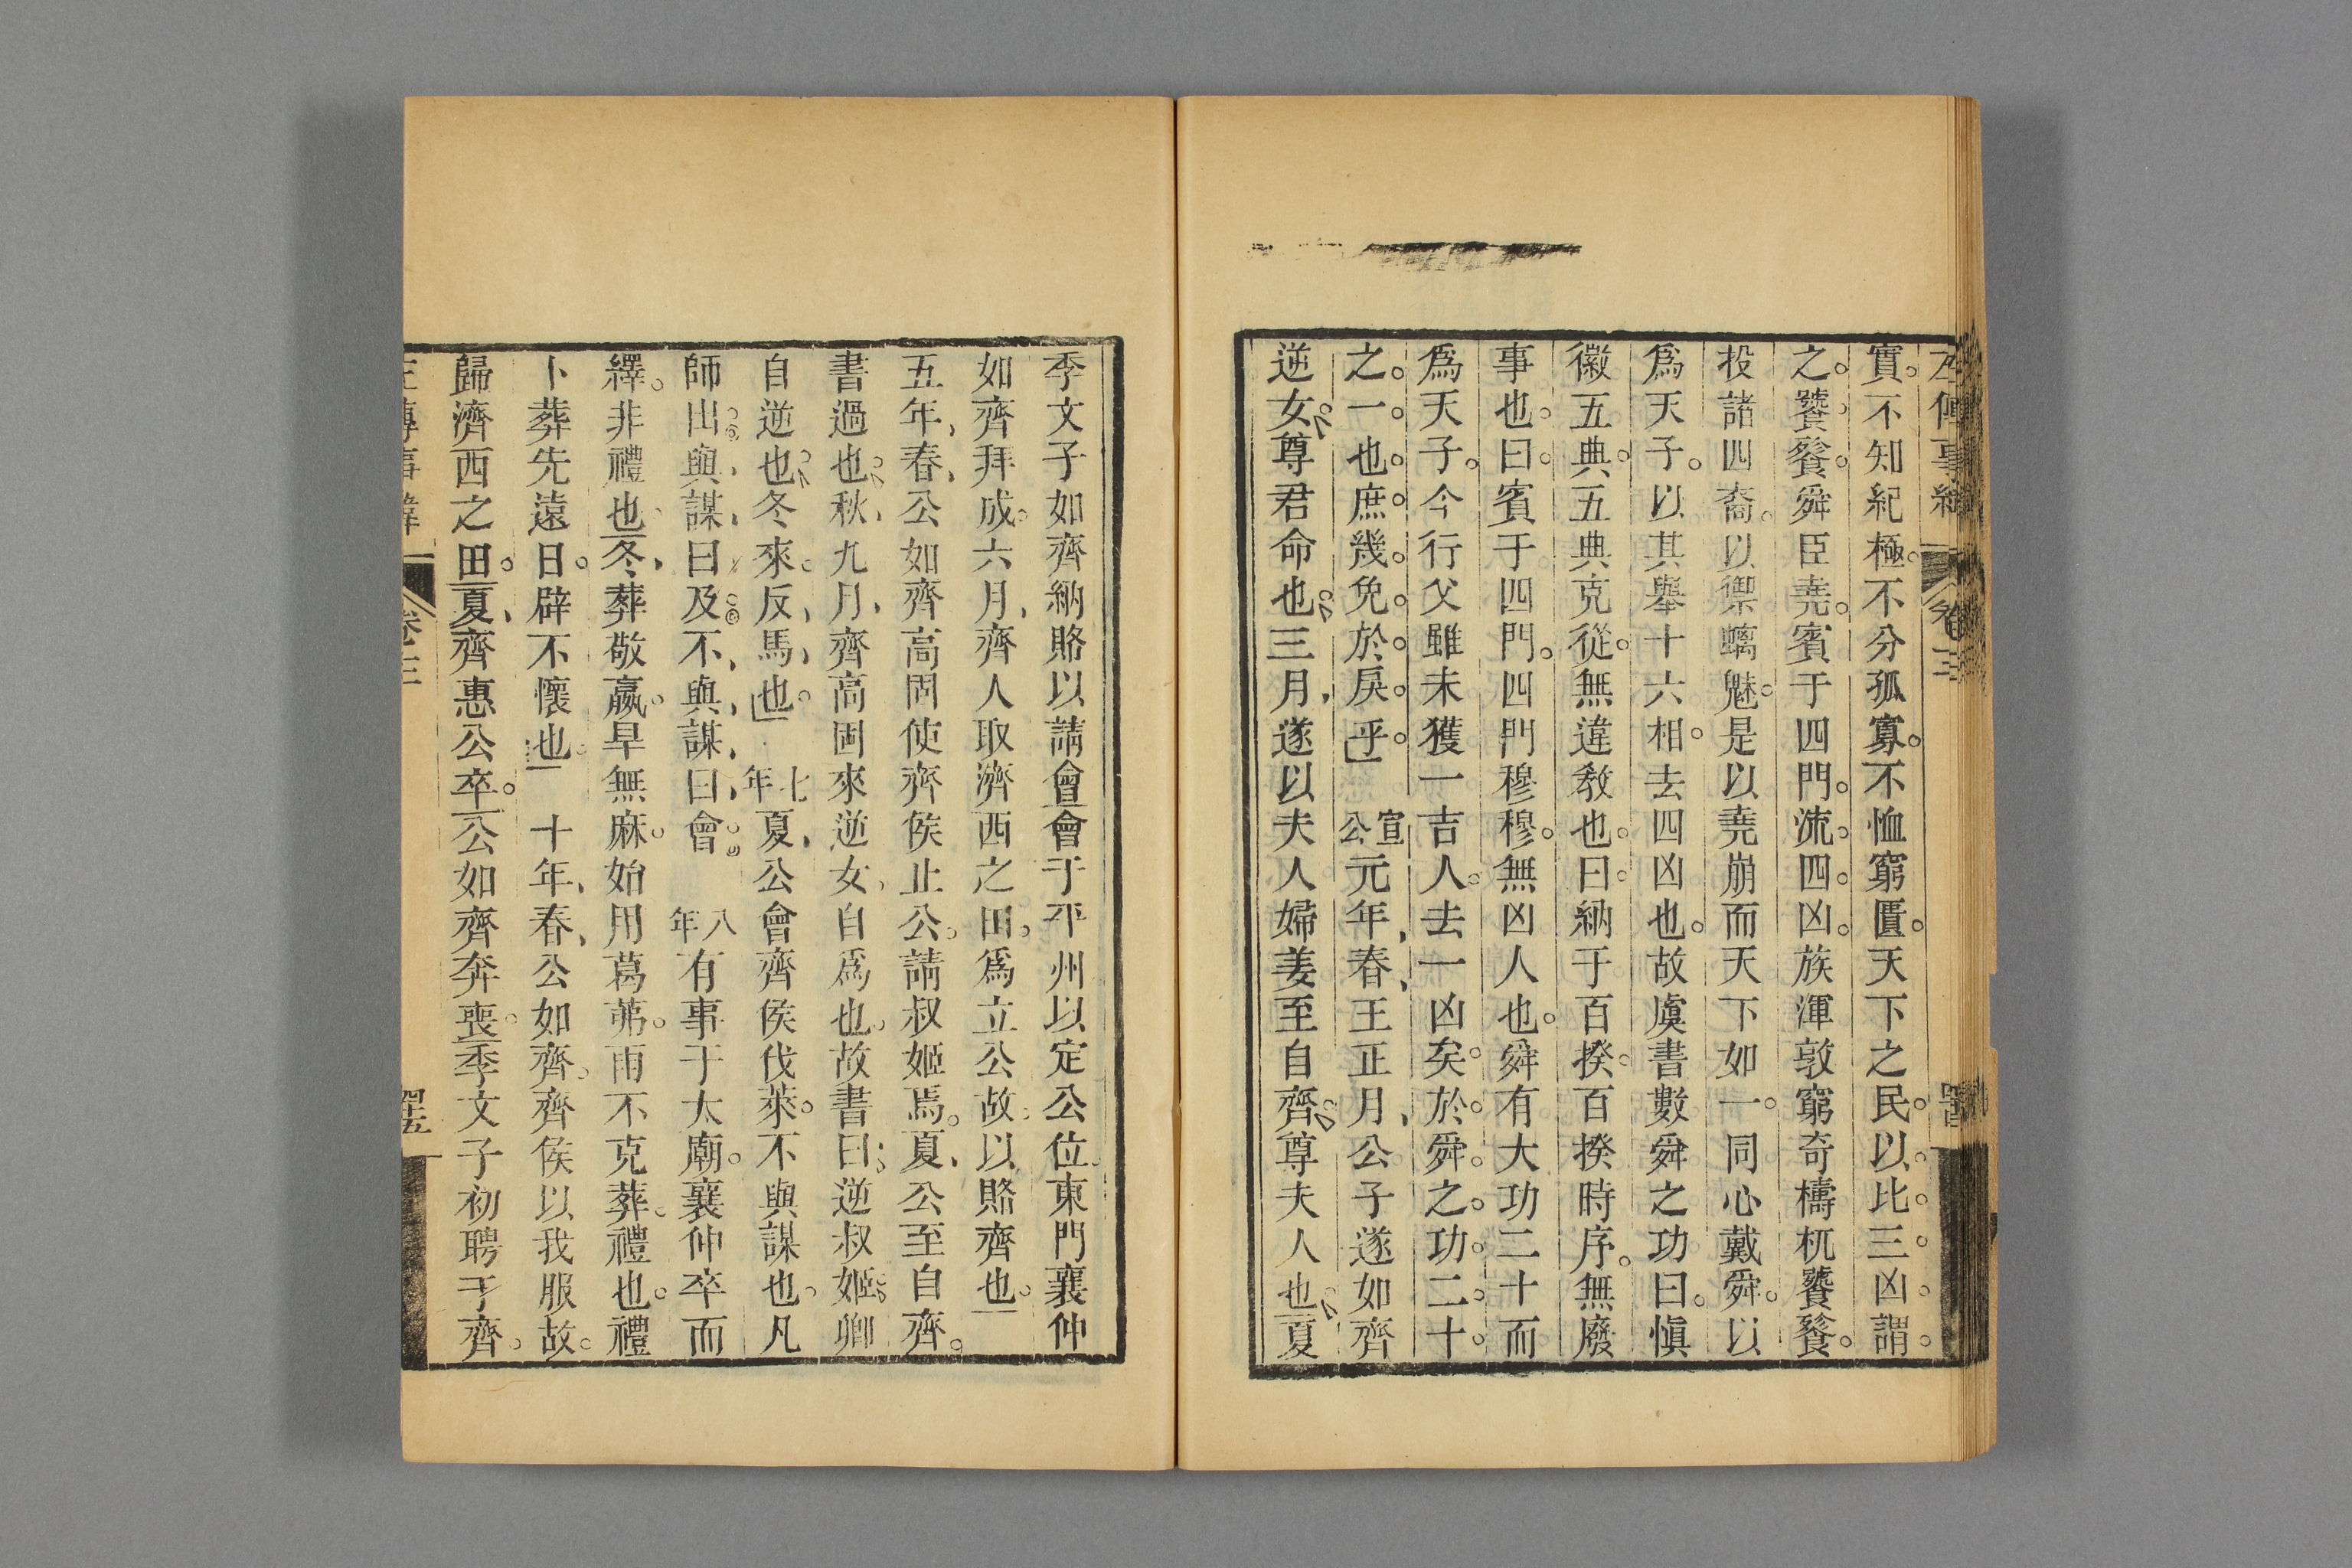 左傳事緯 卷三
實不知紀極不分孤寡不恤窮匱天下之民以比三凶謂
之饕餮舜臣堯賓于四門流四凶族渾敦窮奇檮杌饕餮
投諸四裔以禦螭魅是以堯崩而天下如一同心戴舜以
爲天子以其舉十六相去四凶也故虞書數舜之功曰愼
徽五典五典克從無違教也曰納于百揆百揆時序無廢
事也曰賓于四門四門穆穆無凶人也舜有大功二十而
爲天子今行父雖未獲一吉人去一凶矣於舜之功二十
之一也庶幾免於戾乎 宣公元年春王正月公子遂如齊
逆女尊君命也三月遂以夫人婦姜至自齊尊夫人也夏
季文子如齊納賂以請會會于平州以定公位東門襄仲
如齊拜成六月齊人取濟西之田爲立公故以賂齊也
五年春公如齊高固使齊侯止公請叔姬焉夏公至自齊
書過也秋九月齊高固來逆女自爲也故書曰逆叔姬卿
自逆也冬來反馬也 七年夏公會齊侯伐萊不與謀也凡
師出與謀曰及不與謀曰會 八年有事于太廟襄仲卒而
繹非禮也冬葬敬嬴旱無麻始用葛茀雨不克葬禮也禮
卜葬先遠日辟不懷也 十年春公如齊齊侯以我服故
歸濟西之田夏齊惠公卒公如齊奔喪季文子初聘于齊
左傳事緯 卷三 四十五